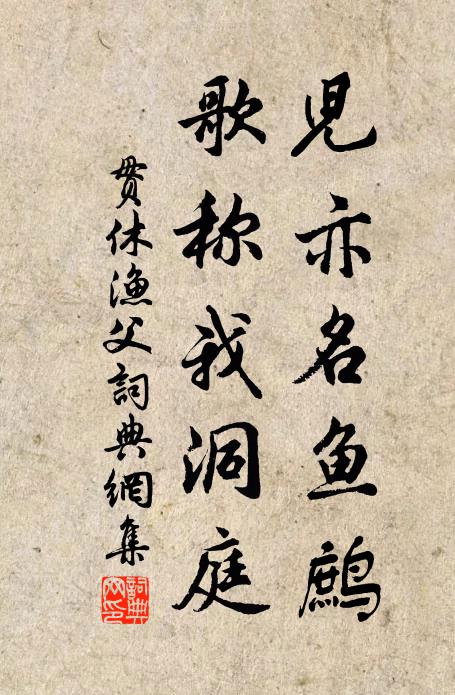 児亦名魚鷓
歌称我洞庭
贯休漁父詞典網集
詞典網印